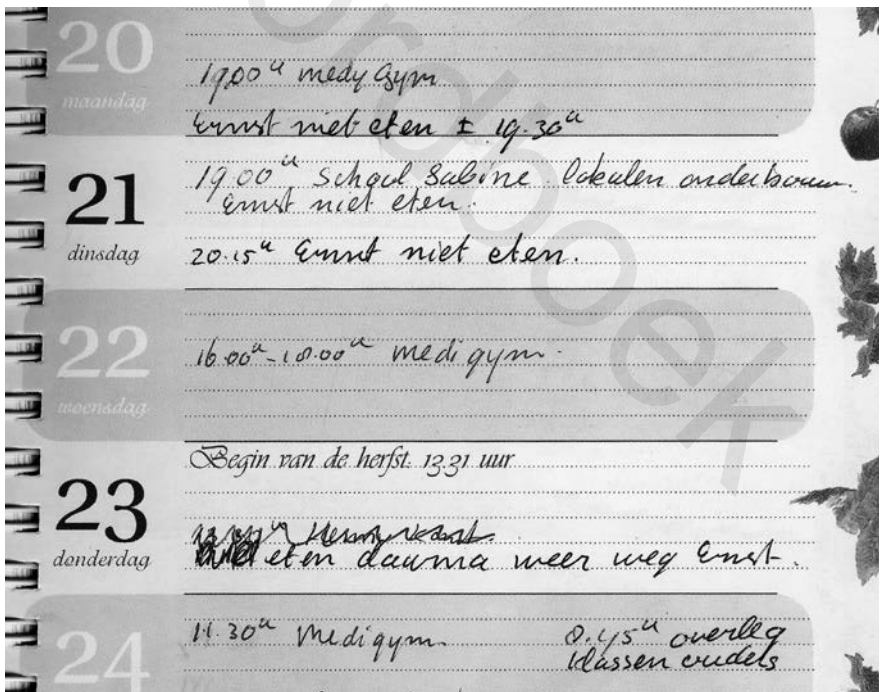 20
maandag
19.00 u medy Gym
Ernst niet eten ± 19.30 u
21
dinsdag
19.00 u school Sabine lokalen onderbouw.
Ernst niet eten.
20.15 u Ernst niet eten.
22
woensdag
16.00 u - 18.00 u medi gym.
23
donderdag
Begin van de herfst: 13.31 uur
eten daarna weer weg Ernst.
24
11.30 u Medigym.
8.45 u overleg
klassen ouders